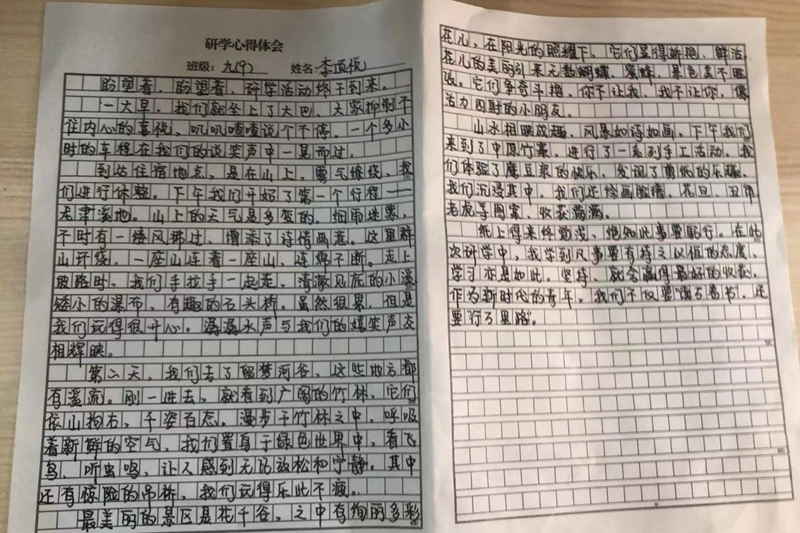 研学心得体会
班级：九(9) 姓名：李
盼望着，盼望着，研学活动终于到来。
一大早，我们就坐上了大巴，大家抑制不
住内心的喜悦，叽叽喳喳说个不停。一个多小
时的车程在我们的说笑声中一晃而过。
到达住宿地点，是在山上，雾气缭绕，我
们进行休整。下午我们开始了第一个行程——
天津溪地。山上的天气是多变的，细雨迷雾，
不时有一缕风拂过，增添了诗情画意。这里群
山环绕。一座山连着一座山，连绵不断。走上
坡路时，我们手拉手一起走，清澈见底的小溪
矮小的瀑布，有趣的石头桥。虽然很累，但是
我们玩得很开心。潺潺水声与我们的嬉笑声交
相辉映。
第二天，我们去了留梦河谷，这些地方都
有溪流。刚一进去，就看到广阔的竹林，它们
依山抱石，千姿百态。漫步于竹林之中，呼吸
着新鲜的空气，我们置身于绿色世界中，看飞
鸟，听虫鸣，让人感到无比放松和宁静。其中
还有惊险的吊桥，我们玩得乐此不疲。
最美丽的景区是花千谷，之中有绚丽多彩
花儿，在阳光的照耀下，它们显得娇艳、鲜活
花儿的美丽引来无数蝴蝶、蜜蜂，景色美不胜
收。它们争奇斗艳，你不让我，我不让你，像
活力四射的小朋友。
山水相映成趣，风景如诗如画。下午我们
来到了中原竹寨，进行了一系列手工活动。我
们体验了磨豆浆的快乐，发现了剪纸的乐趣。
我们沉浸其中。我们还绘画脸谱，花旦、丑角
老虎等图案，收获满满。
纸上得来终觉浅，绝知此事要躬行。在此
次研学中，我学到凡事要有持之以恒的态度，
学习亦是如此，坚持，就会赢得最好的收获。
作为新时代的青年，我们不仅要“读万卷书”，还
要“行万里路”。